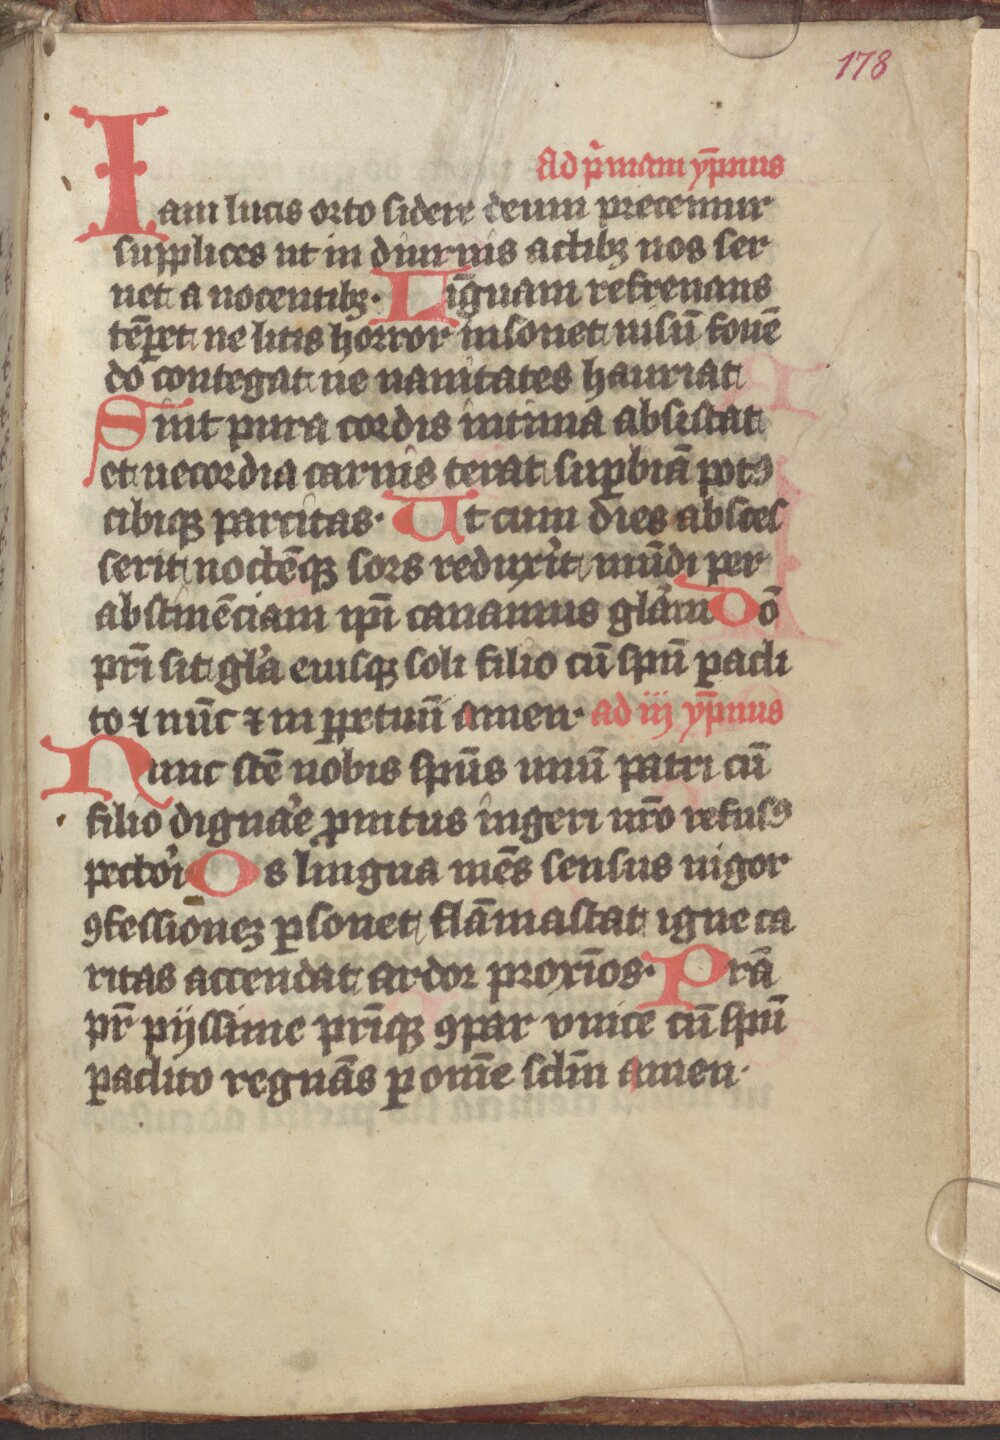 178
Ad p̍mam yp̄nus
Iam lucis orto sidere deum precemur
supplices ut in diurnis actibꝫ nos ser
uet a nocentibꝫ. Līguam refrenans
tēꝑet ne litis horror insonet uisū fouē
do contegat ne uanitates hauriat
Sint pura cordis intima absistat
et uecordia carnis terat suꝑbiā potꝰ
cibiqꝫ parcitas. Ut cum dies absces
serit noctēqꝫ sors reduxit̍ mūdi per
abstinēciam ip̄i canamus gl̍am Dō
pr̄i sit gl̍a eiusqꝫ soli filio cū sp̄u ꝑacli
to ⁊ nūc ⁊ in ꝑpetuū amen. ad iij yp̄nus
Nunc sc̄e nobis sp̄us unū patri cū
filio digna̍e ꝓmtus ingeri nr̄o refusꝰ
pecto̍i Os lingua mēs sensus uigor
ꝯfessioneꝫ ꝑsonet flāmascat igne ca
ritas accendat ardor proxīos. Prā
pr̄ pijssime pr̄iqꝫ ꝯpar vnice cū sp̄u
ꝑaclito regnās ꝑ om̄e sclm̄ amen.